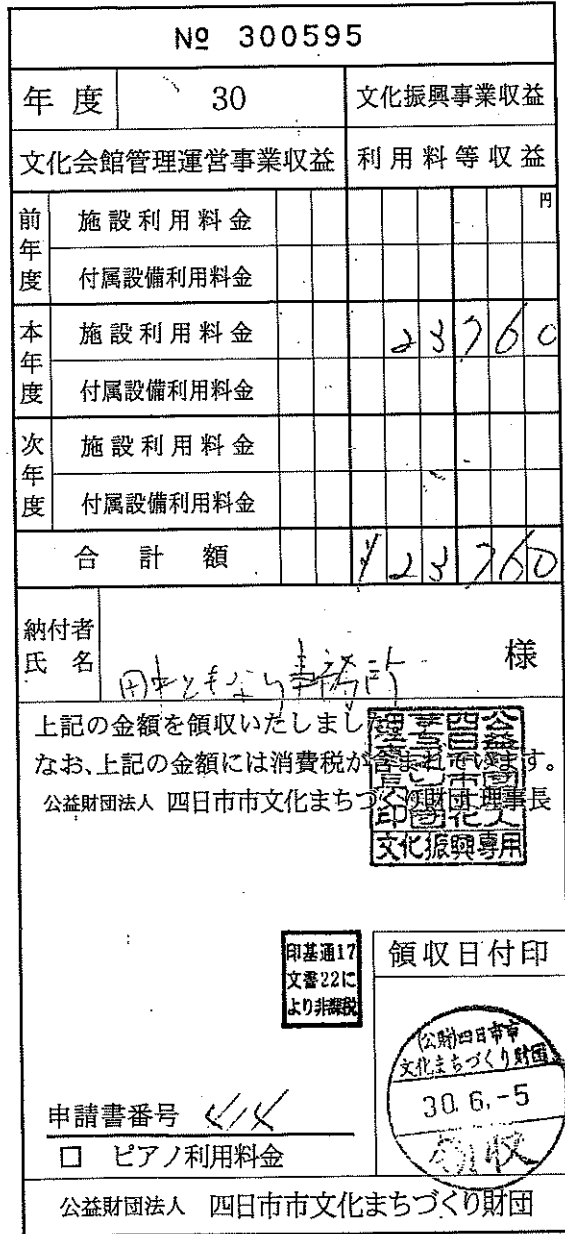 № 300595
年度 30 文化振興事業収益
文化会館管理運営事業収益 利用料等収益
円
前年度 施設利用料金
付属設備利用料金
本年度 施設利用料金 23760
付属設備利用料金
次年度 施設利用料金
付属設備利用料金
合計額 ¥23760
納付者
氏名 田中ともなり事務所 様
上記の金額を領収いたしまし
なお、上記の金額には消費税が含まれています。
公益財団法人 四日市市文化まちづくり財団理事長
文化振興専用
印基通17
文書22に
より非課税
領収日付印
(公財)四日市市
文化まちづくり財団
30.6.-5
領収
申請書番号
□ ピアノ利用料金
公益財団法人 四日市市文化まちづくり財団